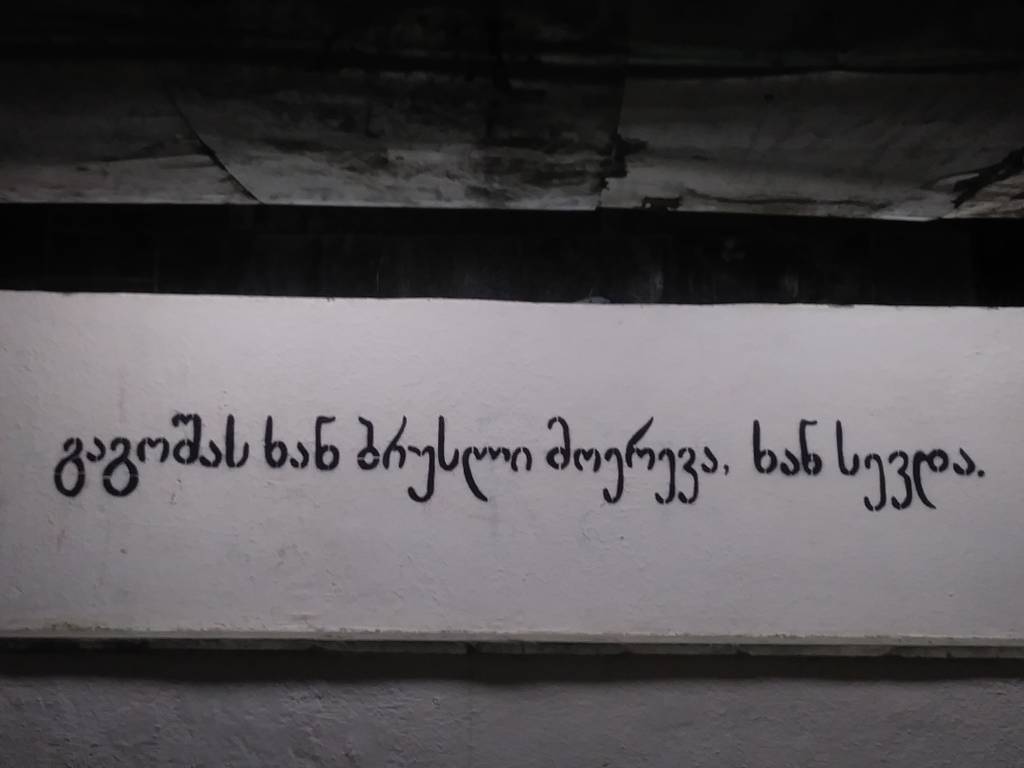 გაგოშას ხან ბრუსლი მოერევა, ხან სევდა.